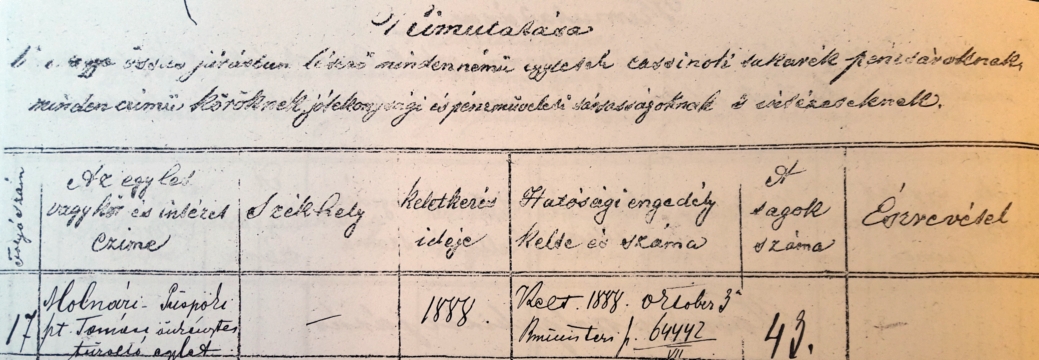 Kimutatása
össes járásban létező mindennémű egyletek cassinok sukarék pénztároknak,
minden czimű köröknek jótékonysági és pénzműveleti társaságoknak s intézeteknek.
Folyószám
Az egylet
vagy kör és intézet
czime
Székhely
keletkezés
ideje
Hatósági engedély
kelte és száma
A
tagok
száma
Észrevétel
17
Molnári - Püspöki
pt. Tamási önkéntes
tüzoltó egylet
—
1888.
Kelt. 1888. October 3
64442
VII
43.